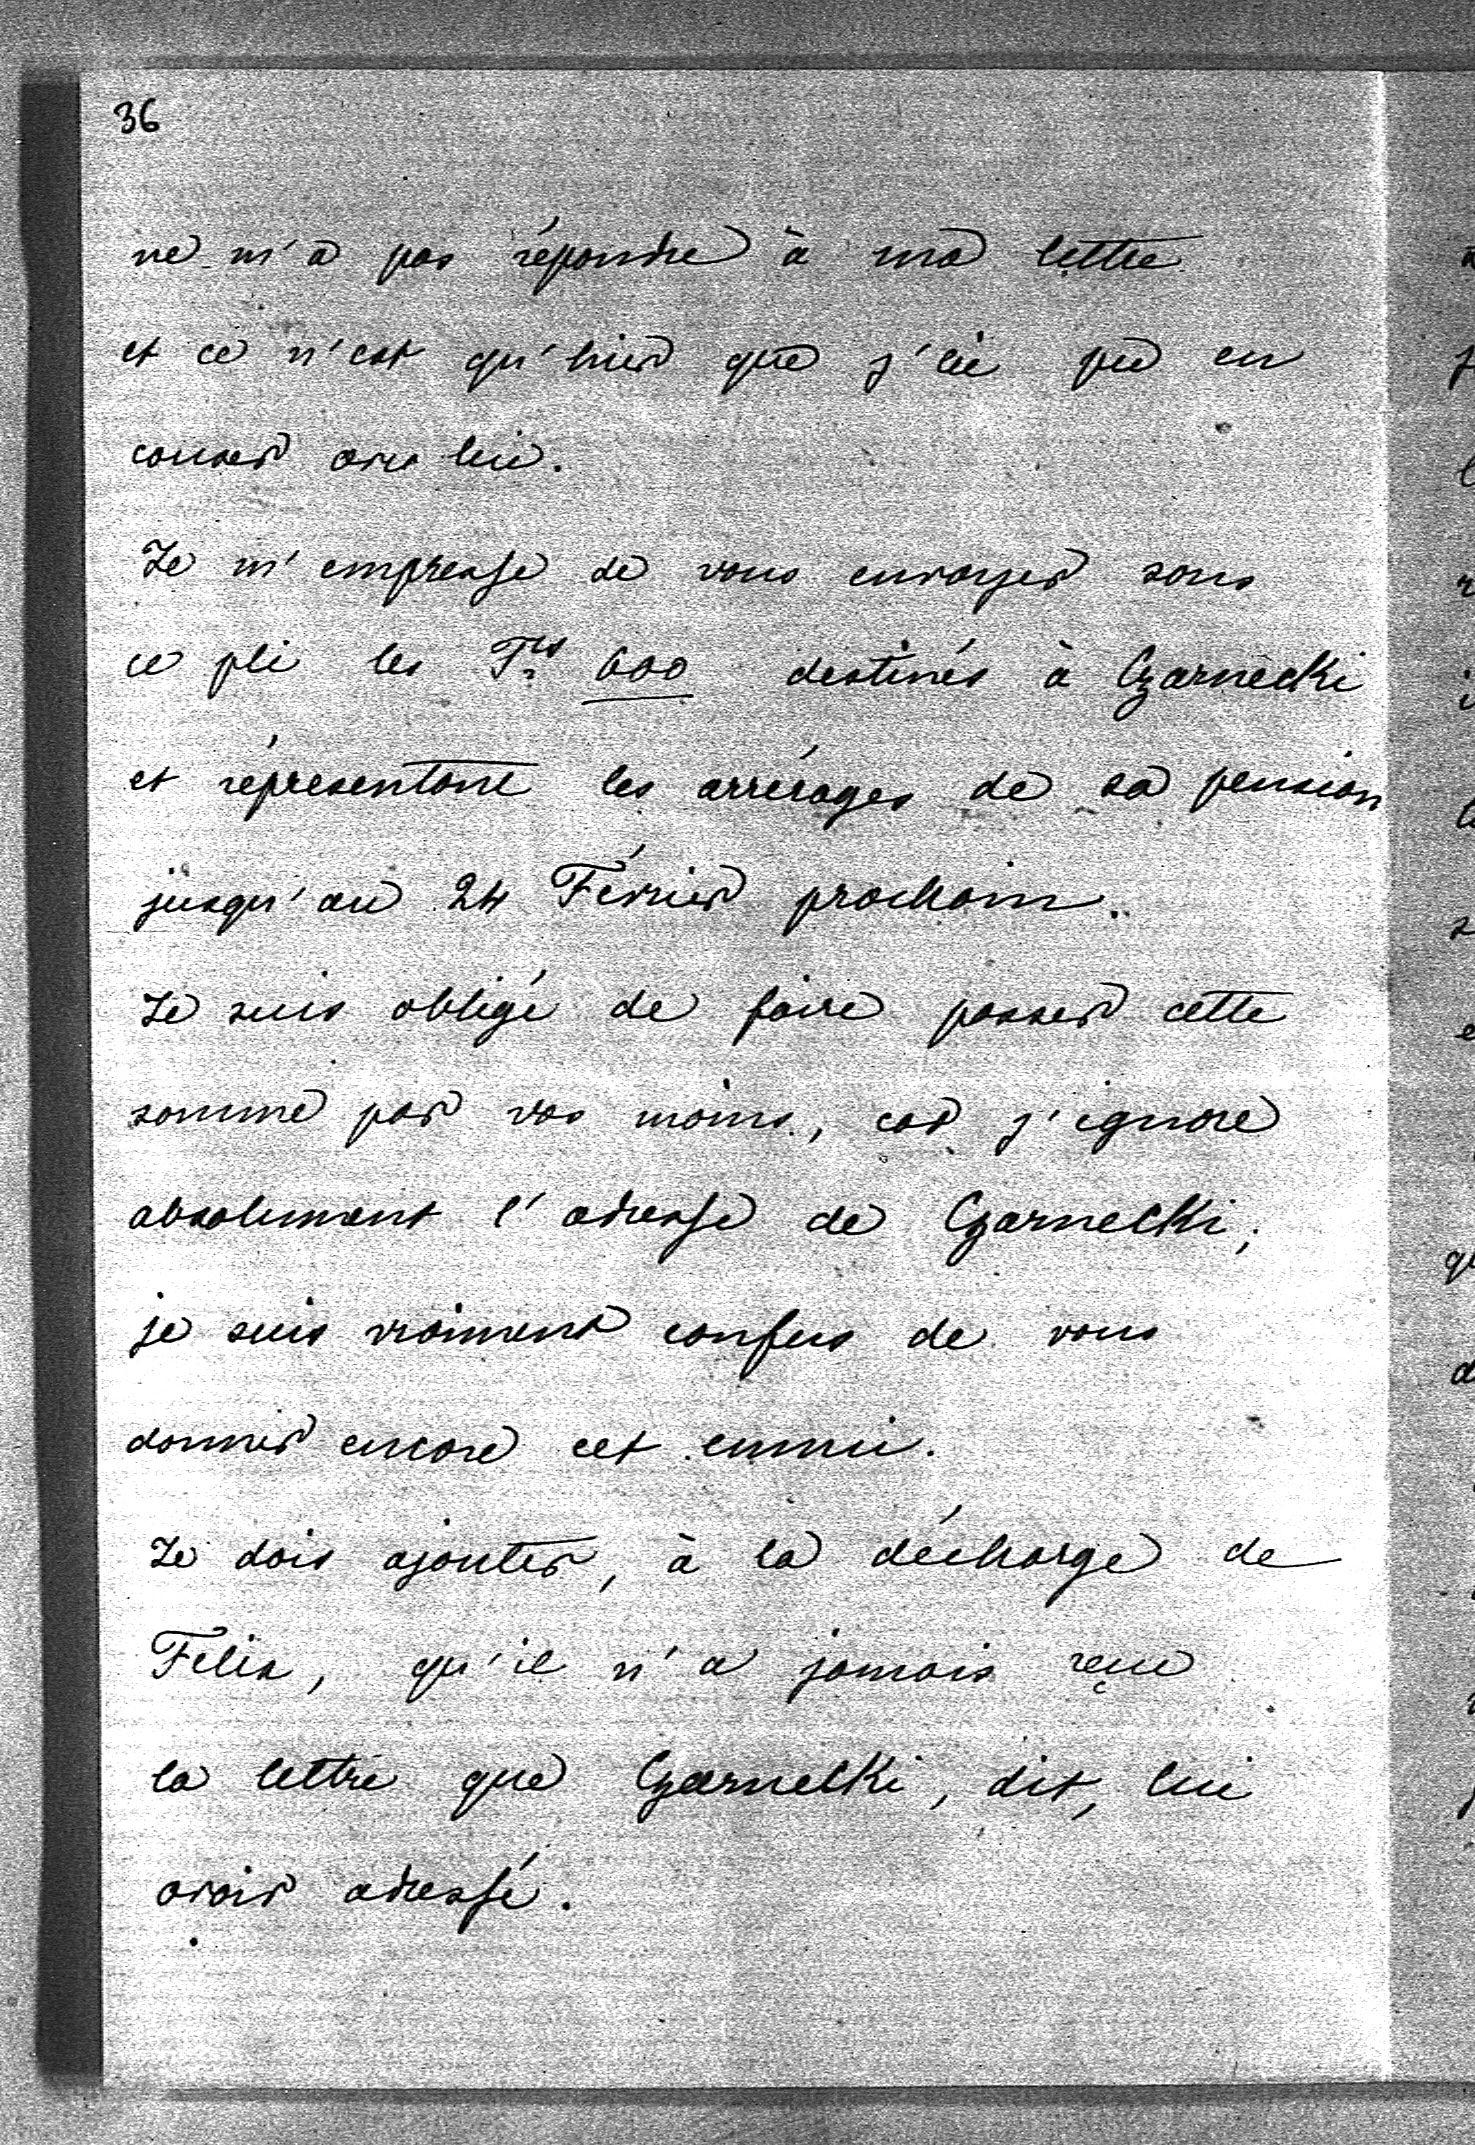 36
ne m'a pas répondre à ma lettre
et ce n'est qu'hier que j'ai pu en
causer avec lui.
Je m'empresse de vous envoyer sous
ce pli les Frs 600 destinés à Czarnecki
et réprésentant les arrérages de sa pension
jusqu'au 24 Février prochain.
Je suis obligé de faire passer cette
somme par vos mains, car j'ignore
absolument l'adresse de Czarnecki;
je suis vraiment confus de vous
donner encore cet ennui.
Je dois ajouter, à la décharge de
Felix, qu'il n'a jamais reçue
la lettre que Czarnecki, dit, lui
avoir adressé.